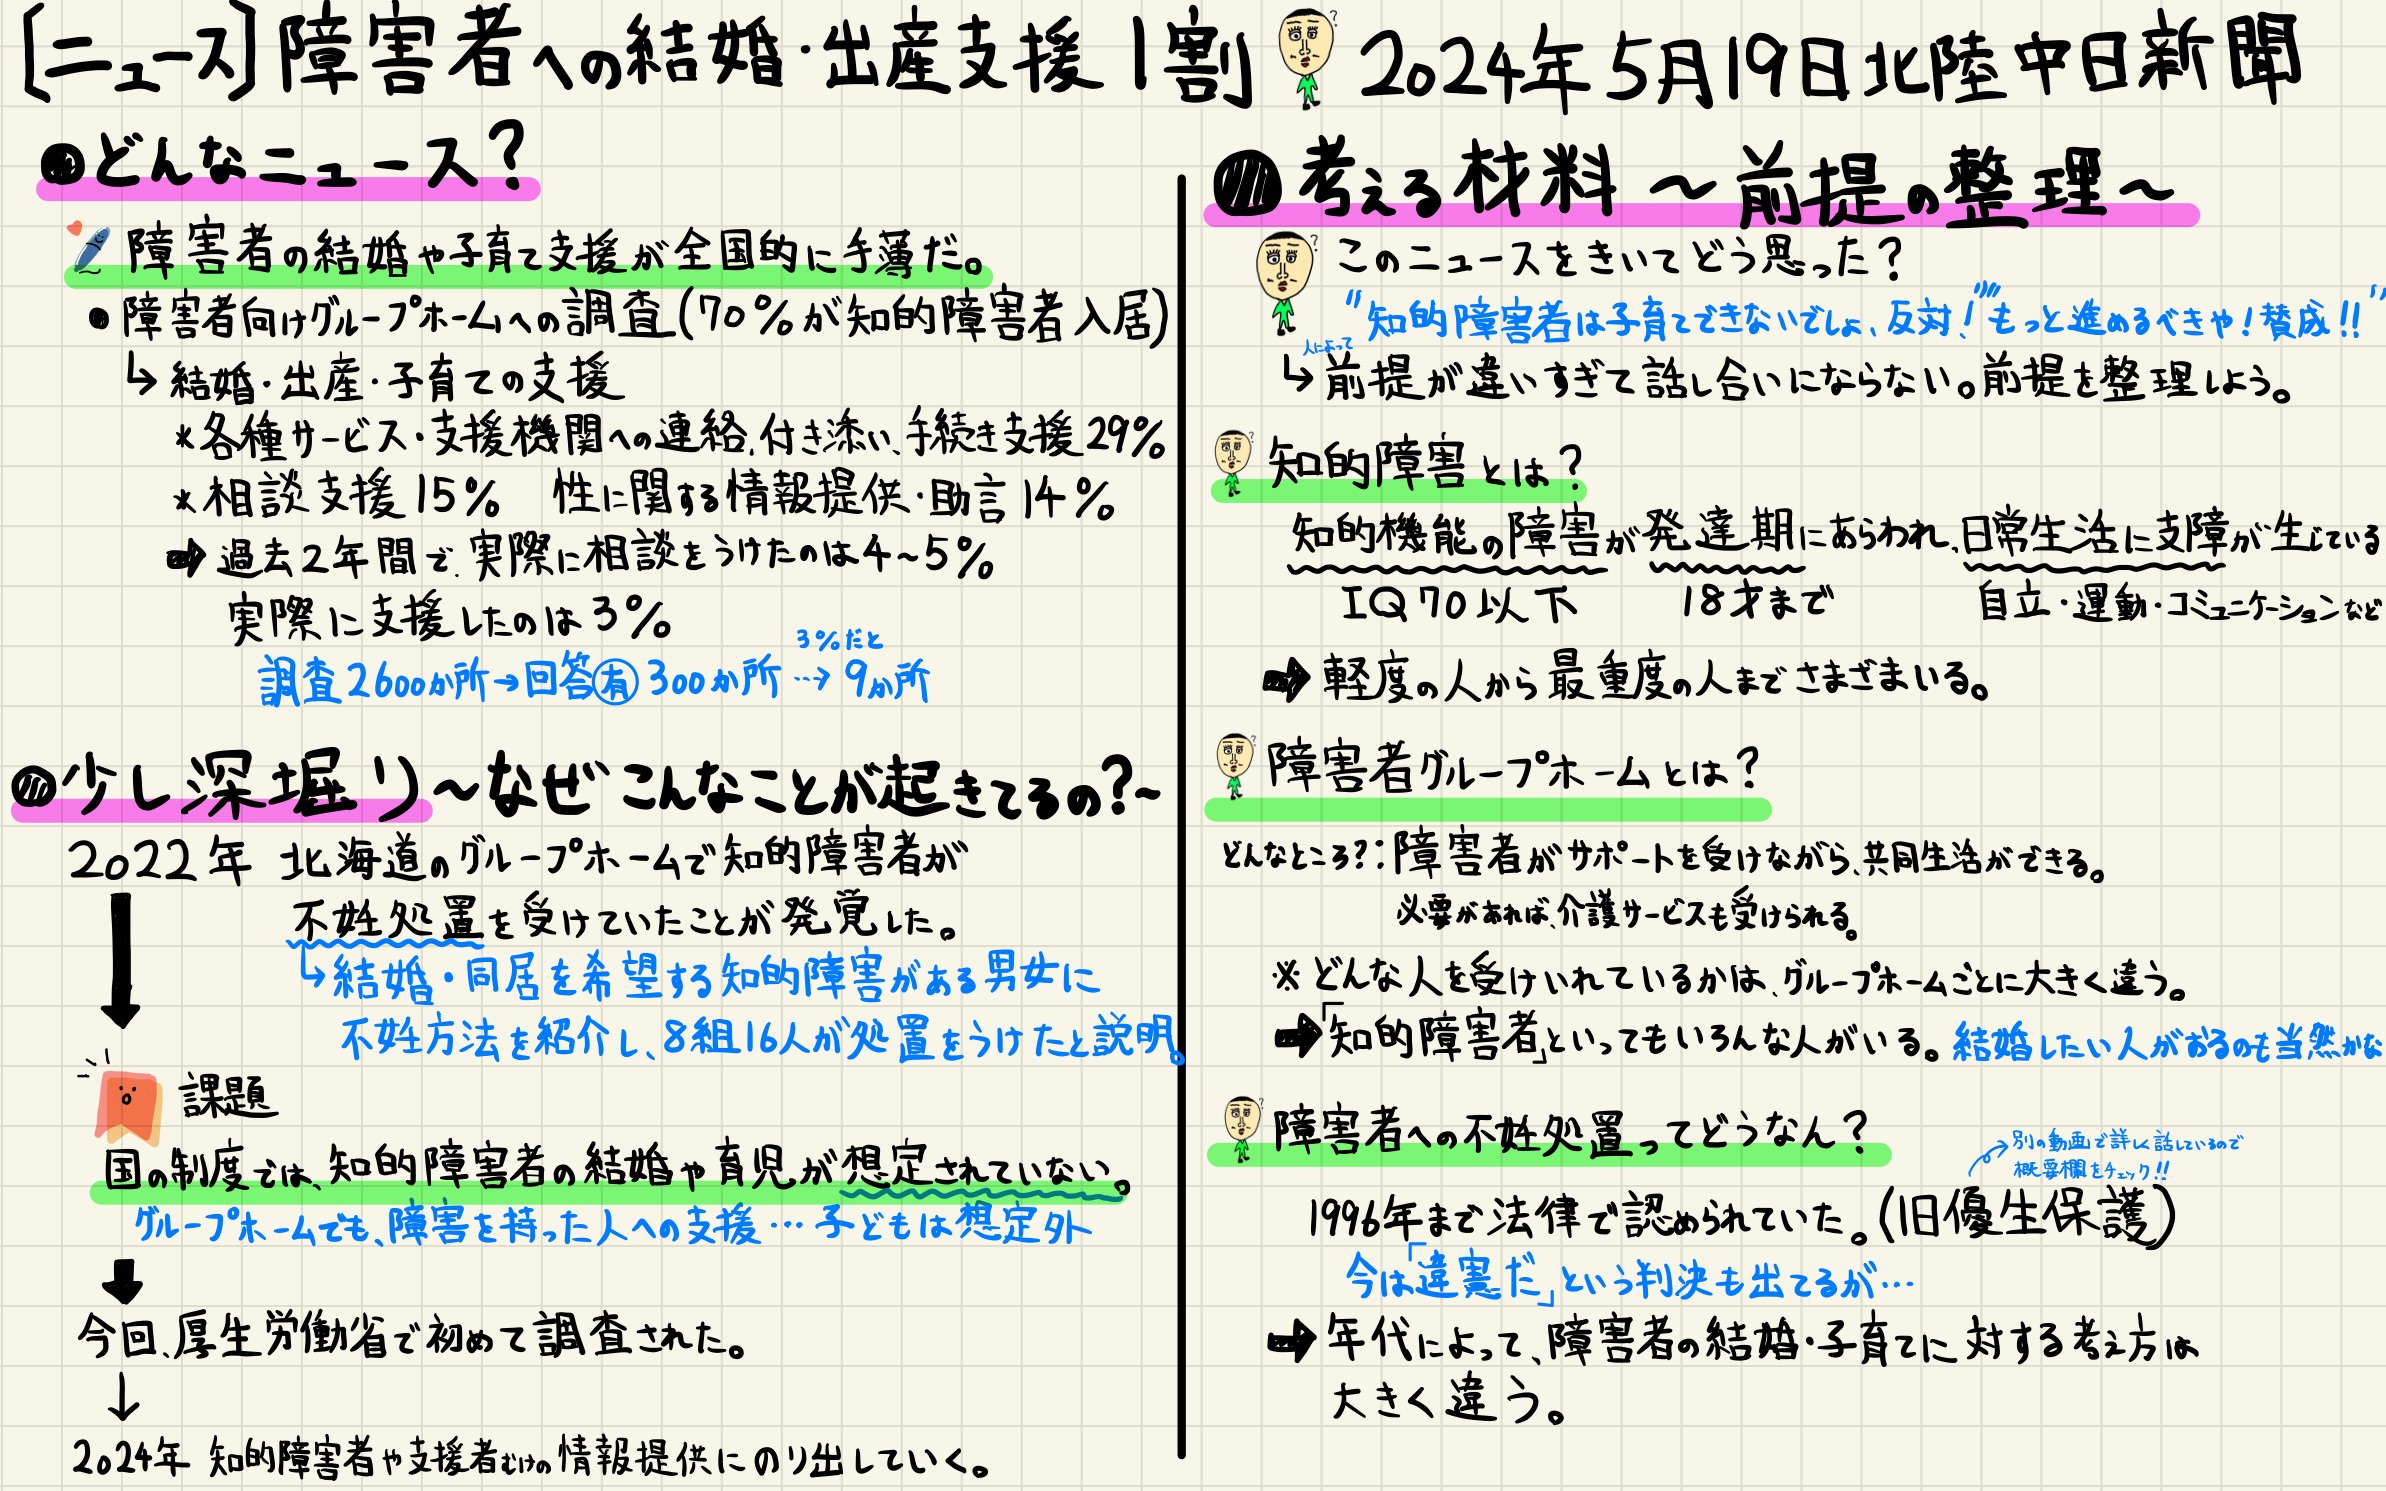 [ニュース]障害者への結婚・出産支援1割 2024年5月19日北陸中日新聞
どんなニュース?
障害者の結婚や子育て支援が全国的に手薄だ。
障害者向けグループホームへの調査(70%が知的障害者入居)
↳結婚・出産・子育ての支援
*各種サービス・支援機関への連絡、付き添い、手続き支援29%
*相談支援15% 性に関する情報提供・助言14%
➡過去2年間で、実際に相談をうけたのは4~5%
実際に支援したのは3%
3%だと
調査2600か所→回答有300か所…→9か所
少し深堀り~なぜこんなことが起きてるの?~
2022年 北海道のグループホームで知的障害者が
不妊処置を受けていたことが発覚した。
↳結婚・同居を希望する知的障害がある男女に
不妊方法を紹介し、8組16人が処置をうけたと説明。
課題
国の制度では、知的障害者の結婚や育児が想定されていない。
グループホームでも、障害を持った人への支援…子どもは想定外
今回、厚生労働省で初めて調査された。
↓
2024年 知的障害者や支援者むけの情報提供にのり出していく。
考える材料~前提の整理~
このニュースをきいてどう思った?
"知的障害者は子育てできないでしょ、反対!" "もっと進めるべきや!賛成!!"
人によって
↳前提が違いすぎて話し合いにならない。前提を整理しよう。
知的障害とは?
知的機能の障害が発達期にあらわれ、日常生活に支障が生じている
IQ70以下 18才まで 自立・運動・コミュニケーションなど
➡軽度の人から最重度の人までさまざまいる。
障害者グループホームとは?
どんなところ?:障害者がサポートを受けながら、共同生活ができる。
必要があれば、介護サービスも受けられる。
※どんな人を受けいれているかは、グループホームごとに大きく違う。
➡「知的障害者」といってもいろんな人がいる。結婚したい人がおるのも当然かな
障害者への不妊処置ってどうなん?
別の動画で詳しく話しているので
概要欄をチェック!!
1996年まで法律で認められていた。(旧優生保護)
今は「違憲だ」という判決も出てるが…
➡年代によって、障害者の結婚・子育てに対する考え方は
大きく違う。